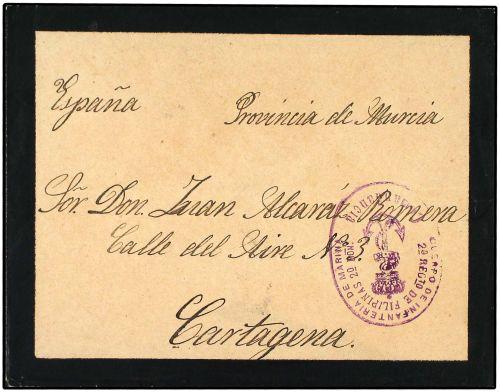 España Provincia de Murcia
Sor. Don Juan Alcaráz Romera
Calle del Aire Nº 3
Cartagena.
CUERPO DE INFANTERIA DE MARINA
2º REGTO DE FILIPINAS 2º